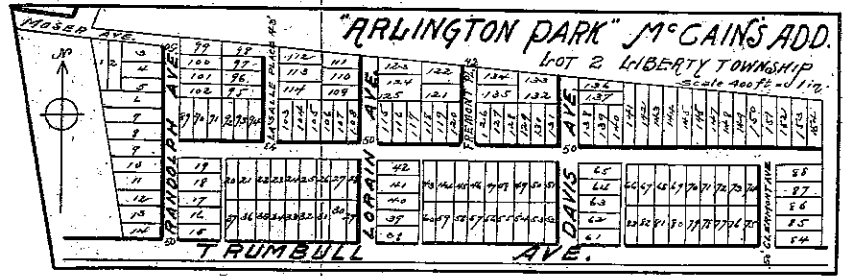 "ARLINGTON PARK" McCAIN'S ADD.
LOT 2 LIBERTY TOWNSHIP
Scale 400ft = 1in.
MOSER AVE.
N
RANDOLPH AVE
LASALLE PLACE
LORAIN AVE
FREMONT PL.
DAVIS AVE
CLERMONT AVE
TRUMBULL AVE.
1 2 3
4
5
6
7
8
9
10
11
12
13
14
99 98
100 97
101 96
102 95
89 90 91 92 93 94
112 111
113 110
114 109
103 104 105 106 107 108
123 122
124
125 121
115 116 117 118 119 120
134 133
135 132
126 127 128 129 130 131
136
137
138 139 140 141 142 143 144 145 146 147 148 149 150 151 152 153 154
19
18
17
16
15
20 21 22 23 24 25 26 27 28
37 36 35 34 33 32 31 30 29
42
41
40
39
38
43 44 45 46 47 48 49 50 51
60 59 58 57 56 55 54 53 52
65
64
63
62
61
66 67 68 69 70 71 72 73 74
83 82 81 80 79 78 77 76 75
88
87
86
85
84
50
50
50